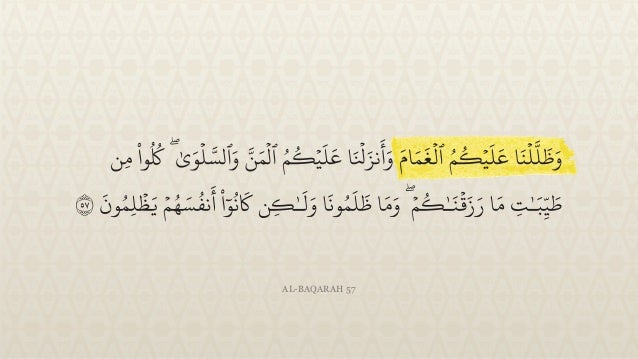 وَظَلَّلْنَا عَلَيْكُمُ ٱلْغَمَامَ وَأَنزَلْنَا عَلَيْكُمُ ٱلْمَنَّ وَٱلسَّلْوَىٰ ۖ كُلُوا۟ مِن
طَيِّبَـٰتِ مَا رَزَقْنَـٰكُمْ ۖ وَمَا ظَلَمُونَا وَلَـٰكِن كَانُوٓا۟ أَنفُسَهُمْ يَظْلِمُونَ ۝٥٧
AL-BAQARAH 57